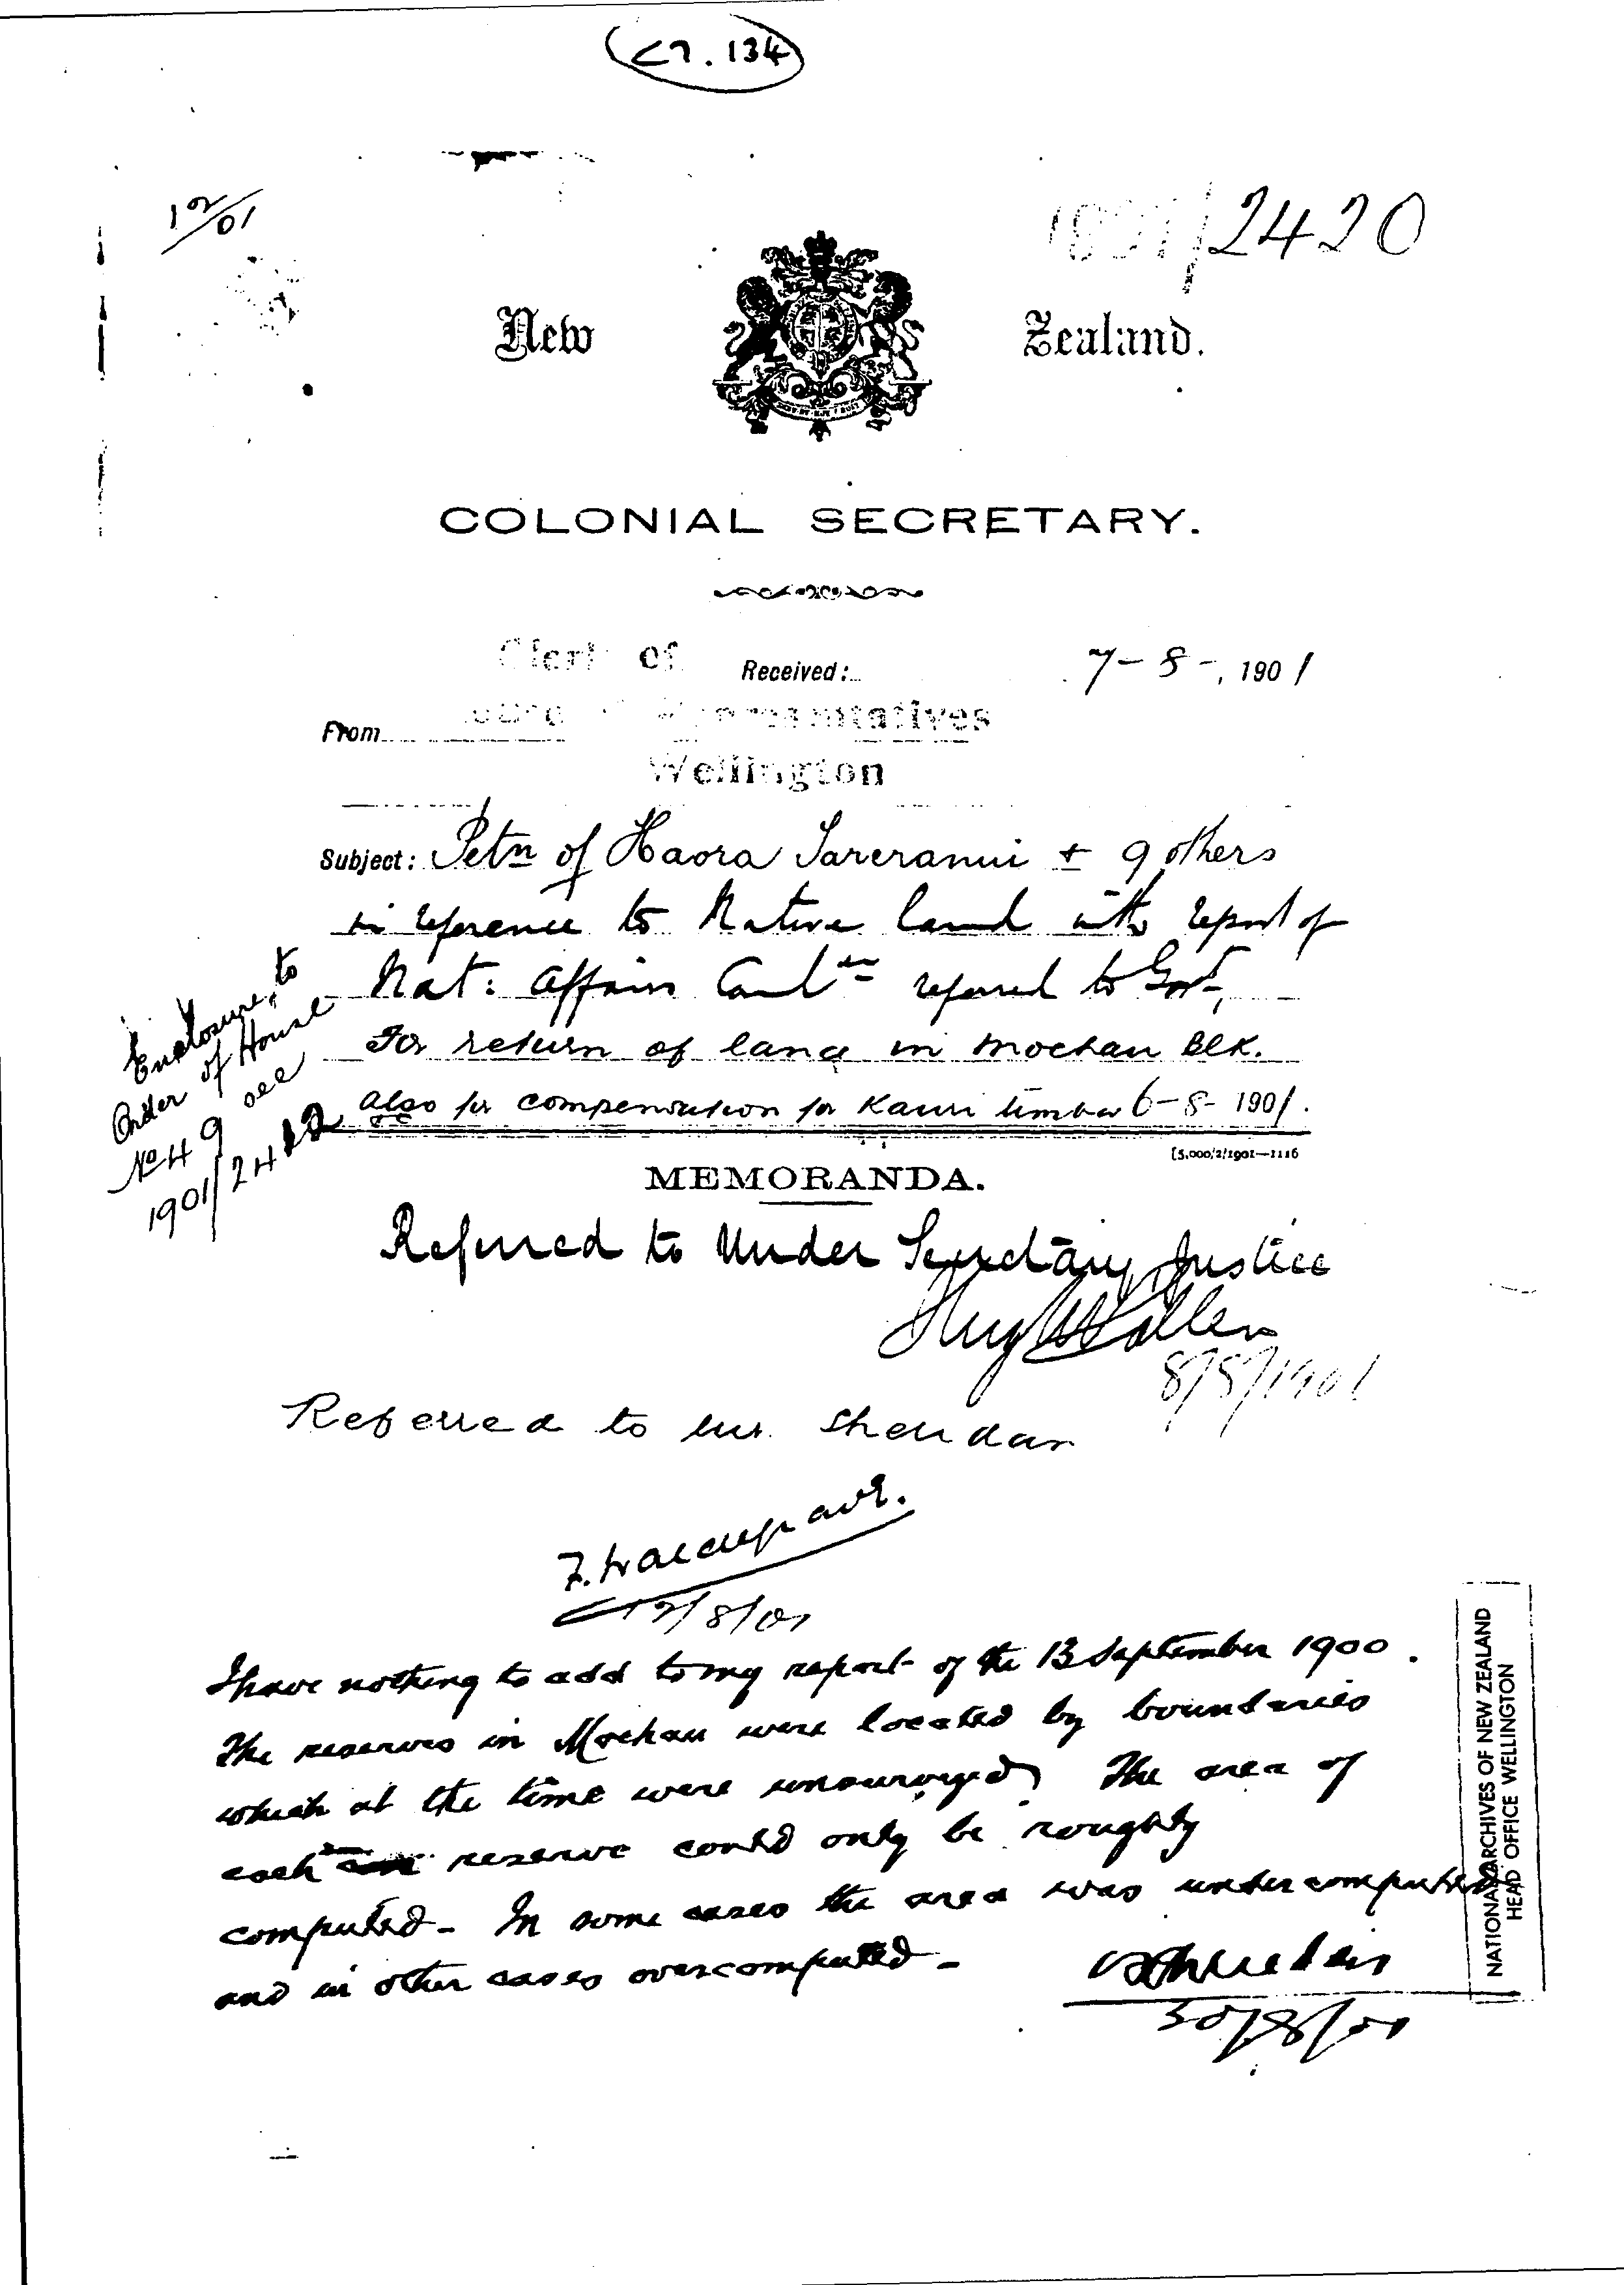 C7.134
1901/2420
New Zealand.
COLONIAL SECRETARY.
Clerk of
Received: 7-8-, 1901
From House of Representatives
Wellington
Subject: Petn of Haora Tareranui + 9 others
in reference to Native land with report of
Nat: Affairs Comtee referred to Govt,
For return of land in Moehau Blk.
also for compensation for Kauri timber 6-8-1901.
Enclosure to
Order of House
No 49 see
1901/2422
[5,000/2/1901—1116
MEMORANDA.
Referred to Under Secretary, Justice
Hugh Pollen
8/8/1901
Referred to Mr. Sheridan
F. Waldegrave.
12/8/01
I have nothing to add to my report of the 13 September 1900.
The reserves in Moehau were located by boundaries
which at the time were unsurveyed The area of
each reserve could only be roughly
computed - In some cases the area was undercomputed
and in other cases overcomputed -
30/8/01
NATIONAL ARCHIVES OF NEW ZEALAND
HEAD OFFICE WELLINGTON